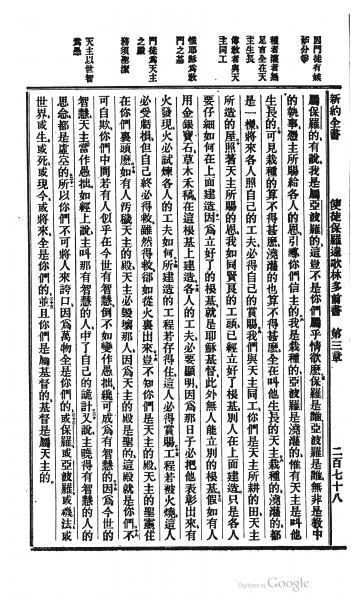 新約全書 使徒保羅達歌林多前書 第三章 二百七十八
因門徒有嫉妒分爭
種者灌者無足言全在天主生長
傳教者與天主同工
惟耶穌爲救門之基
門徒爲天主之殿
務須聖潔
天主以世智爲愚
屬保羅的有說我是屬亞波羅的這豈不是你們屬乎情欲麼保羅是誰亞波羅是誰無非是教中
的執事憑主所賜給各人的恩引導你們信主的我是栽種的亞波羅是澆灌的惟有天主是叫他
生長的可見栽種的算不得甚麼澆灌的也算不得甚麼全在叫他生長的天主栽種的澆灌的都
是一樣將來各人照自己的工夫必得自己的賞賜我們與天主同工你們是天主所耕的田天主
所造的屋照著天主所賜的恩我如同賢良的工頭已經立好了根基別人在上面建造只是各人
要仔細如何在上面建造因爲立好了的根基就是耶穌基督此外無人能立別的根基假如有人
用金銀寶石草木禾稿在這根基上建造各人的工夫必要顯明因爲那日子必把他表彰出來有
火發現火必試煉各人的工夫如何所建造的工程若存得住這人必得賞賜工程若被火燒這人
必受虧損但自己終必得救雖然得救卻如從火裏出來豈不知你們是天主的殿天主的聖靈住
在你們裏頭麼如有人污穢天主的殿天主必毀壞那人因爲天主的殿是聖的這殿就是你們不
可自欺你們中間若有人似乎在今世有智慧倒不如變作愚拙纔可成爲有智慧的因爲今世的
智慧天主當作愚拙如經上說主叫那有智慧的人中了自己的詭計又說主曉得有智慧的人的
思念都是虛空的所以你們不可將人來誇口因爲萬物全是你們的或保羅或亞波羅或磯法或
世界或生或死或現今或將來全是你們的並且你們是屬基督的基督是屬天主的
Digitized by Google